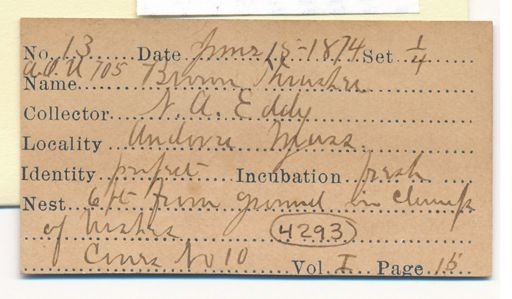 No. 13 Date June 15-1874 Set 1/4
A.O.U 705
Name Brown Thrasher
Collector N. A. Eddy
Locality Andover Mass
Identity perfect Incubation fresh
Nest 6 ft from ground in clump
of
4293
No 10 Vol. I Page 15